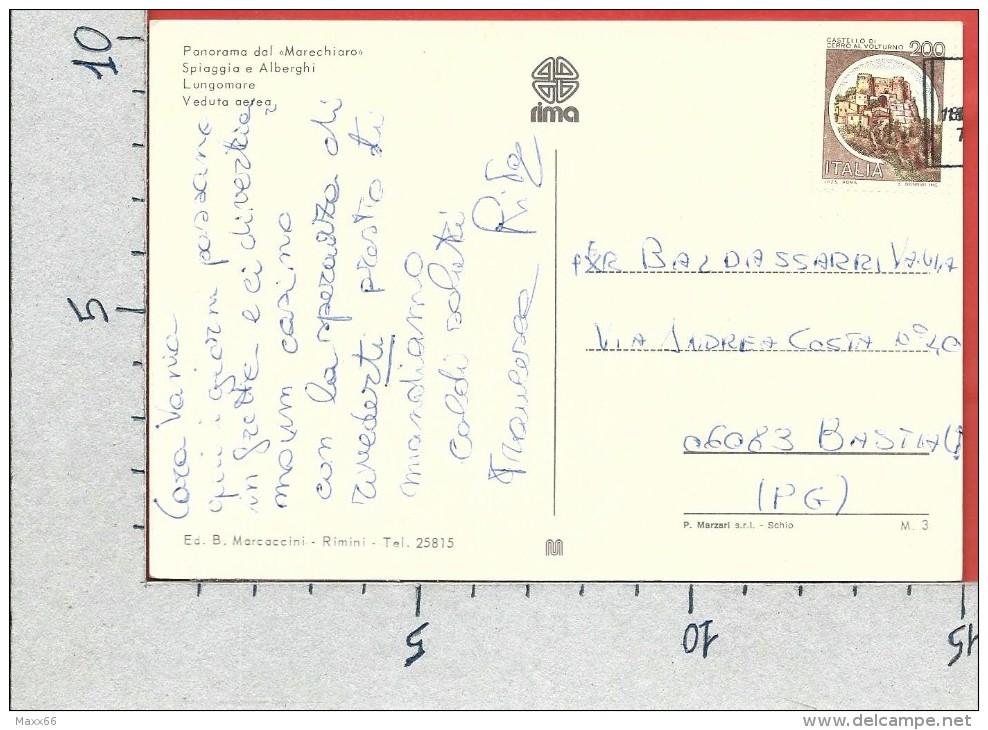 Panorama dal «Marechiaro»
Spiaggia e Alberghi
Lungomare
Veduta aerea
rima
CASTELLO DI
CERRO AL VOLTURNO
200
ITALIA
I.P.Z.S. ROMA
Cara Vania
qui i giorni passano
in fretta e ci divertia
moun casino
con la speranza di
rivederti presto ti
mandiamo
caldi saluti
Francesca Rita
PER BALDASSARRI VANIA
VIA ANDREA COSTA N° 40
06083 BASTIA U
(PG)
P. Marzari s.r.l. - Schio
M. 3
Ed. B. Marcaccini - Rimini - Tel. 25815
M
10
5
5
10
15
Maxx66
delcampe.net